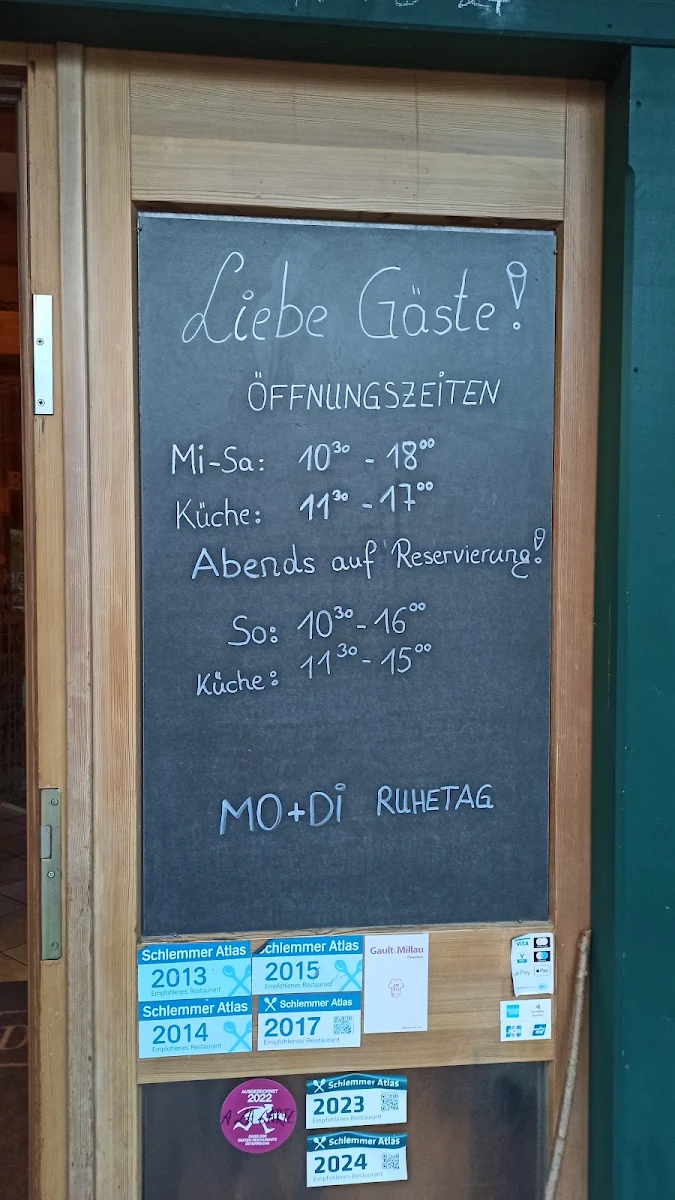 Liebe Gäste!
ÖFFNUNGSZEITEN
Mi-Sa: 10³⁰ - 18⁰⁰
Küche: 11³⁰ - 17⁰⁰
Abends auf Reservierung!
So: 10³⁰ - 16⁰⁰
Küche: 11³⁰ - 15⁰⁰
MO+Di RUHETAG
Schlemmer Atlas
2013
Empfohlenes Restaurant
chlemmer Atlas
2015
Empfohlenes Restaurant
Gault&Millau
Schlemmer Atlas
2014
Empfohlenes Restaurant
Schlemmer Atlas
2017
Empfohlenes Restaurant
VISA
V PAY
Pay
Pay
AUSGEZEICHNET
2022
A LA CARTE
EINES DER
BESTEN RESTAURANTS
ÖSTERREICHS
Schlemmer Atlas
2023
Empfohlenes Restaurant
Schlemmer Atlas
2024
Empfohlenes Restaurant